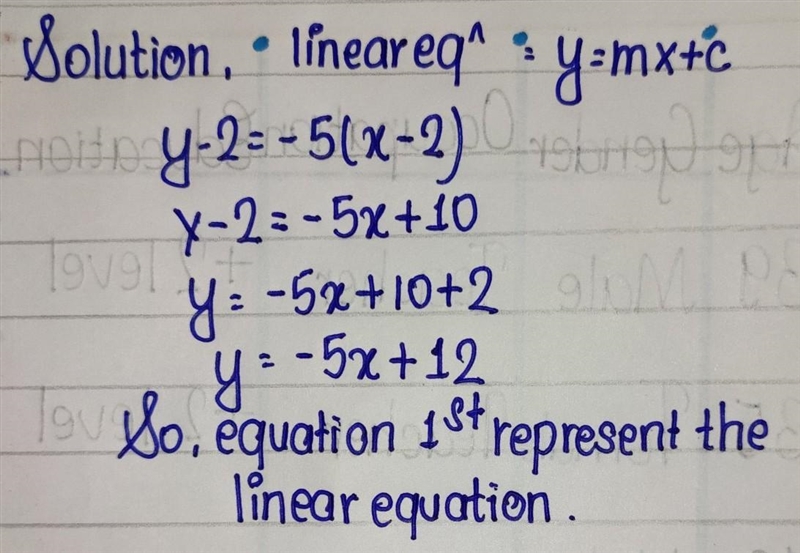 Solution, • linear eq^ : y=mx+c
y-2=-5(x-2)
y-2=-5x+10
y=-5x+10+2
y=-5x+12
So, equation 1st represent the
linear equation.